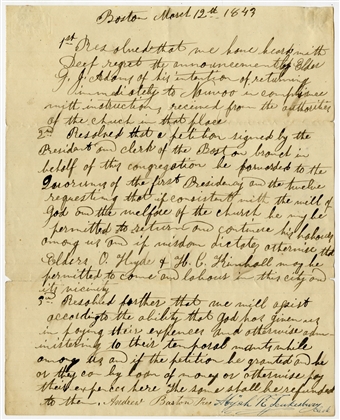 Boston March 12th 1843
1st Resolved that we have heard with
deep regret the announcement by Elder
G. J. Adams of his intention of returning
immediately to Nauvoo in compliance
with instructions received from the authorities
of the church in that place
2nd Resolved that a petition signed by the
President and clerk of the Boston branch in
behalf of this congregation be forwarded to the
Quorums of the first Presidency and the twelve
requesting that if consistent with the will of
God and the welfare of the church he may be
permitted to return and continue his labours
among us and if wisdom dictates otherwise that
Elders, O. Hyde & H. C. Kimball may be
permitted to come and labour in this city and
its vicinity
3rd Resolved further that we will assist
according to the ability that God has given us
in paying their expences and otherwise admin
istering to their temporal wants while
among us and if the petition be granted and he
or they come by loan of money or otherwise for
their expences here the same shall be refunded
to them